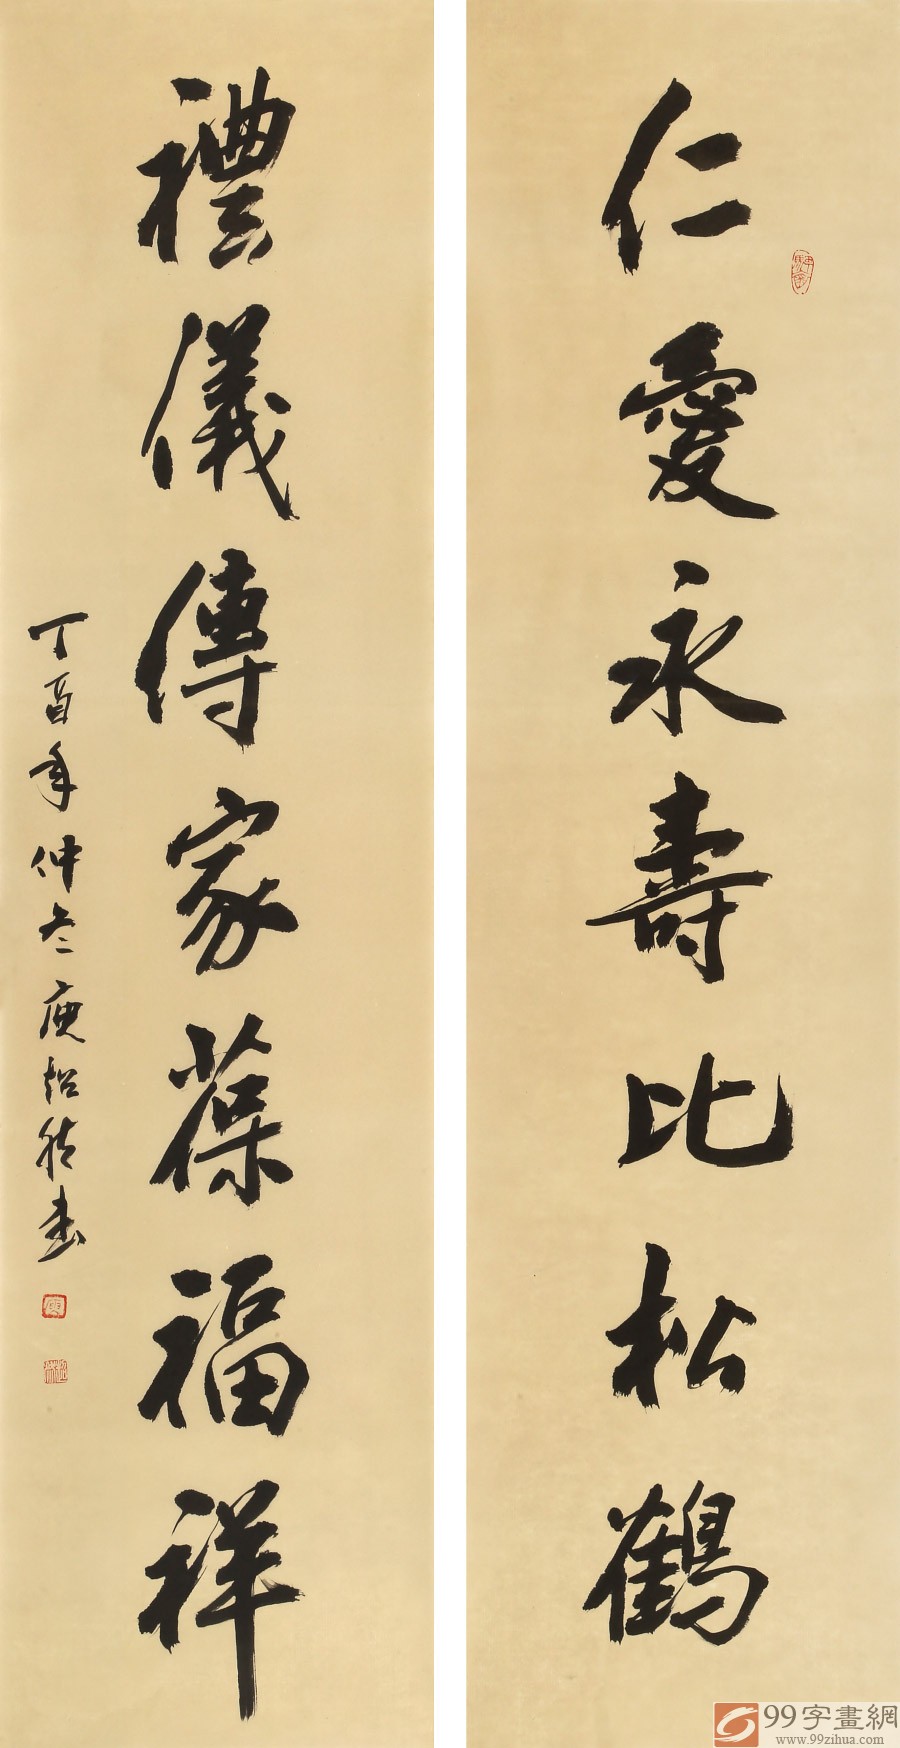 仁愛永壽比松鶴
禮儀傳家葆福祥
丁酉年仲冬庾超然書
99字畫網
www.99zihua.com